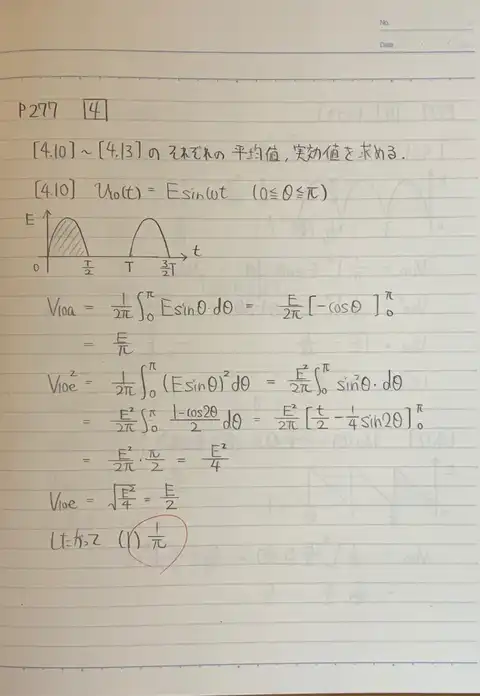 No.
Date
P277 [4]
[4.10]～[4.13]の それぞれの 平均値, 実効値を求める.
[4.10] V₁₀(t) = E sin ωt (0≦θ≦π)
E
0 T/2 T 3/2T t
V₁₀ₐ = 1/2π ∫₀^π E sinθ・dθ = E/2π [-cosθ]₀^π
= E/π
V₁₀ₑ² = 1/2π ∫₀^π (E sinθ)² dθ = E²/2π ∫₀^π sin²θ・dθ
= E²/2π ∫₀^π (1-cos2θ)/2 dθ = E²/2π [t/2 - 1/4 sin2θ]₀^π
= E²/2π・π/2 = E²/4
V₁₀ₑ = √(E²/4) = E/2
したがって (1) 1/π